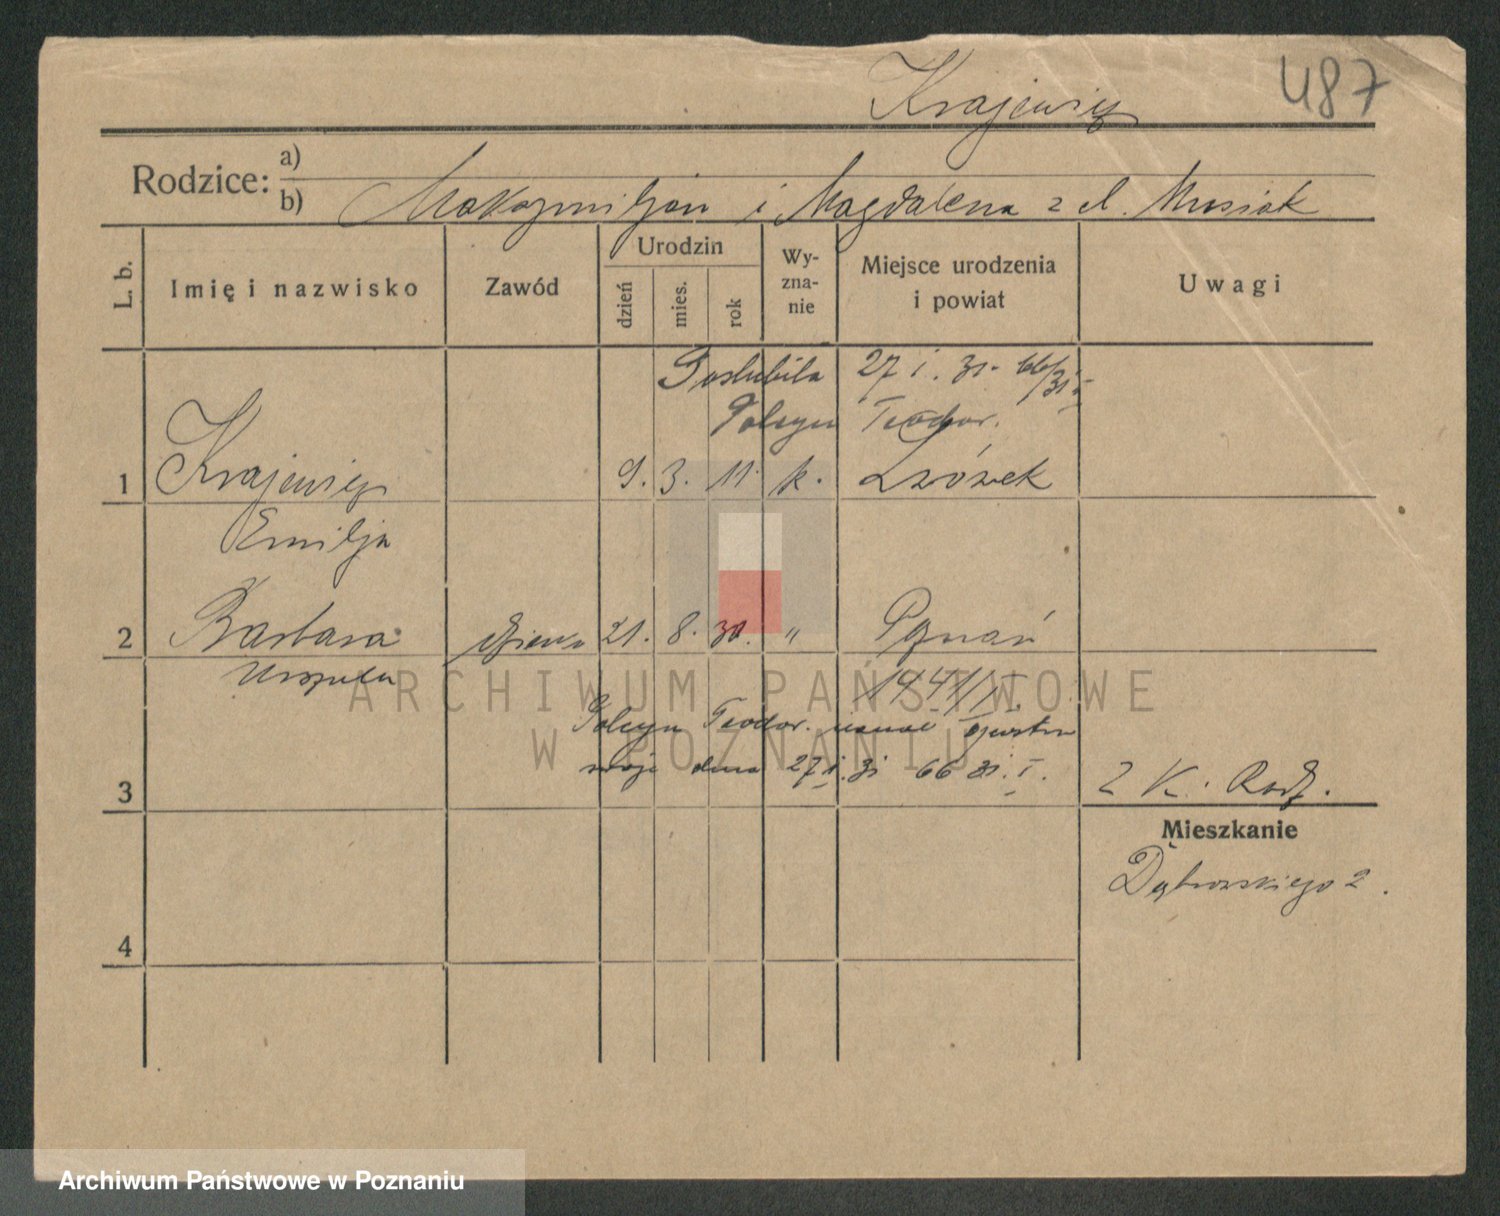 Krajewicz 487
Rodzice: a)
b) Maksymiljan i Magdalena z d. Musiak
L. b. Imię i nazwisko Zawód Urodzin dzień mies. rok Wy-zna-nie Miejsce urodzenia i powiat Uwagi
Poślubiła 27 i. 31. 66/31 I
Teodor.
1 Krajewicz 9. 3. 11. k. Lwówek
Emilja
2 Barbara 21. 8. 30. " Poznań
Urszula 1941/I
Teodor. uznał
dnia 27 i. 31 66 31. I.
3 2 K. Rodz.
Mieszkanie
Dąbrowskiego 2.
4
ARCHIWUM PAŃSTWOWE
W POZNANIU
Archiwum Państwowe w Poznaniu